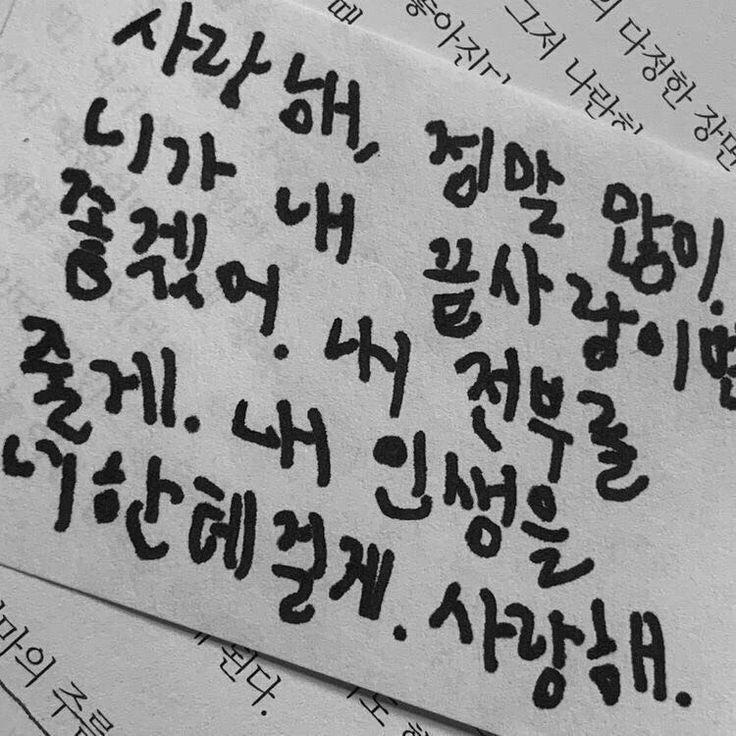 의 다정한 장면
그저 나란히
좋아진다
때
사랑해, 정말 많이.
니가 내 끝사랑이면
좋겠어. 내 전부를
줄게. 내 인생을
너한테 걸게. 사랑해.
마의 주름
게 된다.